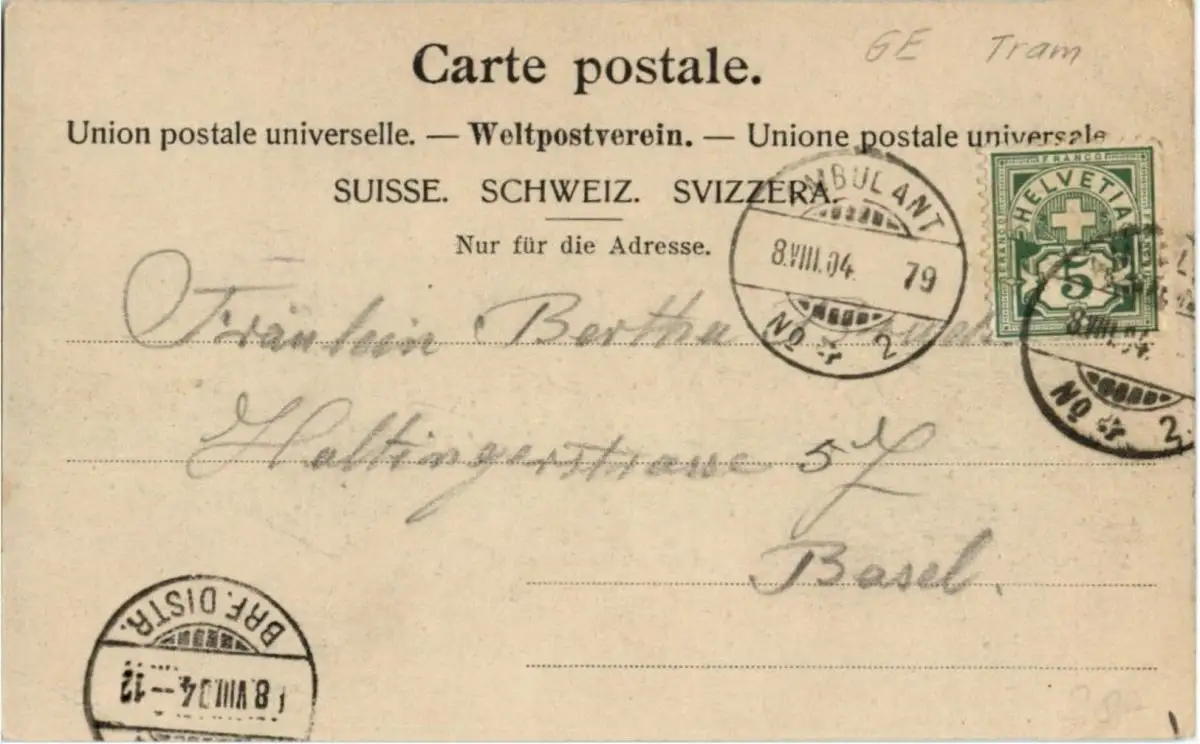 GE Tram
Carte postale.
Union postale universelle. — Weltpostverein. — Unione postale universale
SUISSE. SCHWEIZ. SVIZZERA.
Nur für die Adresse.
FRANCO
HELVETIA
5
AMBULANT
8.VIII.04. 79
No 2
8.VIII.04.
No 2
Fräulein Bertha
Haltingerstrasse 57
Basel.
BRF. DISTR.
8.VIII.04.–12